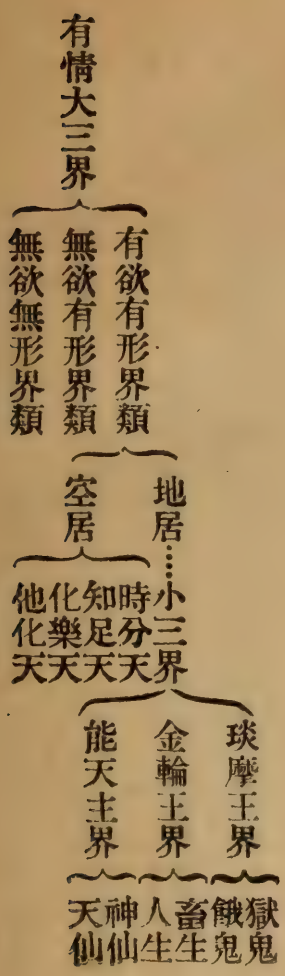 有情大三界
有欲有形界類
無欲有形界類
無欲無形界類
地居……小三界
空居
時分天
知足天
化樂天
他化天
琰摩王界
金輪王界
能天主界
獄鬼
餓鬼
畜生
人生
神仙
天仙